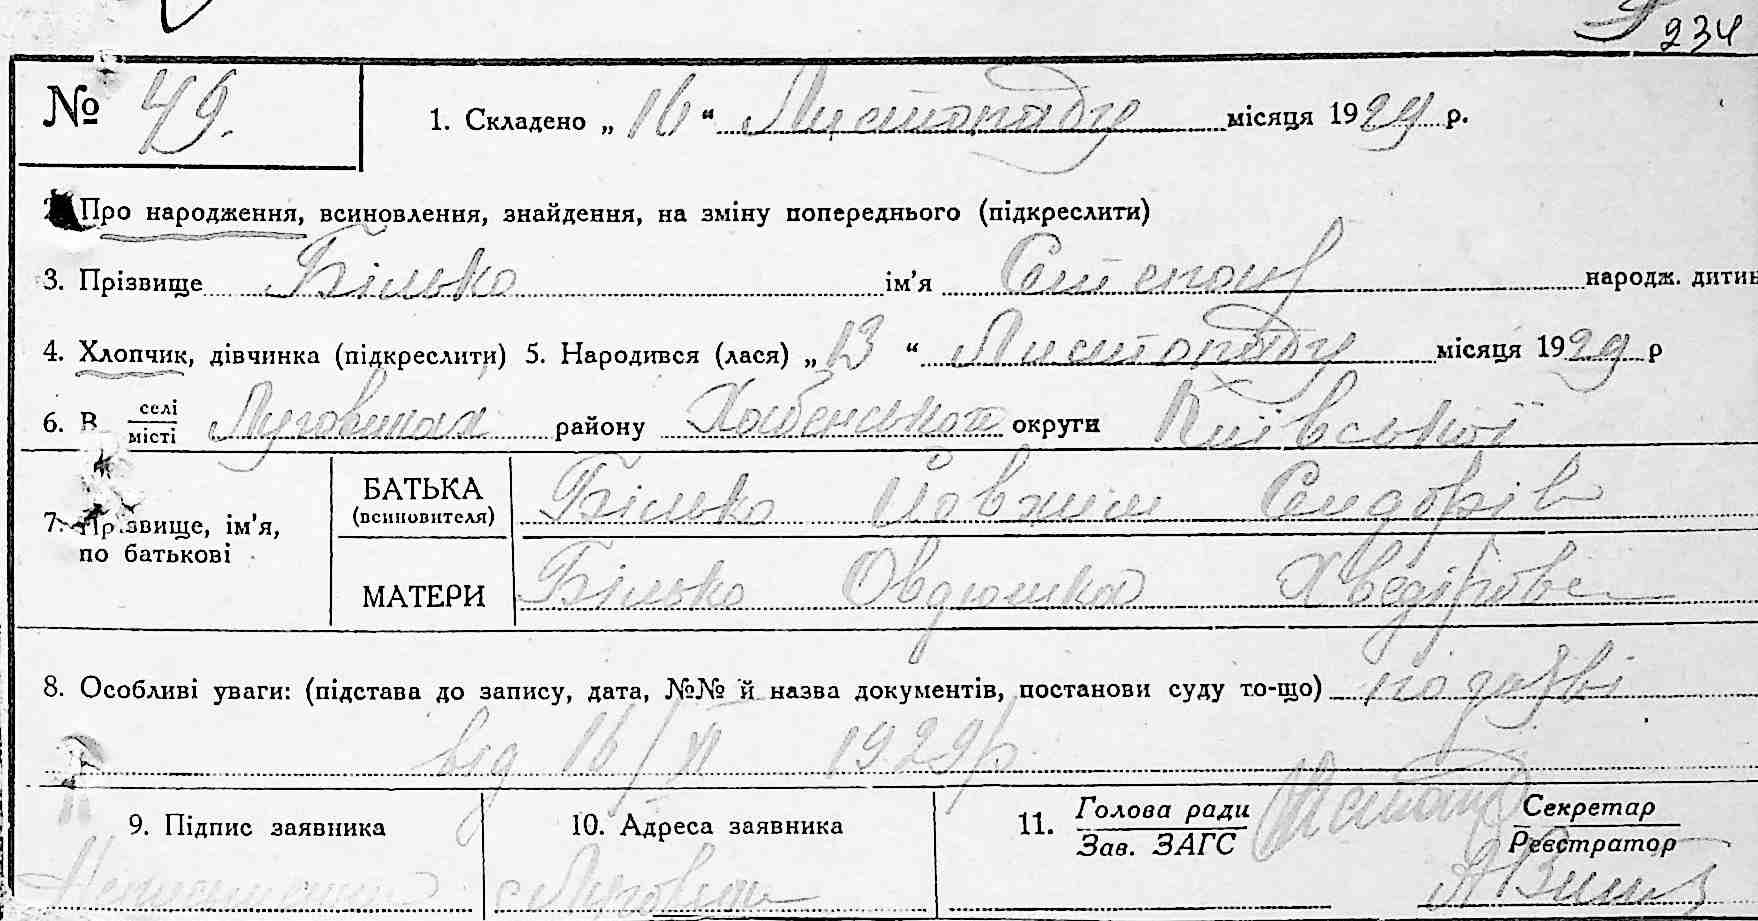 234
№ 49. 1. Складено „ 16 “ Листопаду місяця 1929 р.
Про народження, всиновлення, знайдення, на зміну попереднього (підкреслити)
3. Прізвище Білько ім’я Степан народж. дитин
4. Хлопчик, дівчинка (підкреслити) 5. Народився (лася) „ 13 “ Листопаду місяця 1929 р
6. В селі / місті Луговиках району Хабенського округи Київської
7. Прізвище, ім’я, по батькові
БАТЬКА (всиновителя) Білько Йовхим Сидорів
МАТЕРИ Білько Овдюшка Хведірове
8. Особливі уваги: (підстава до запису, дата, №№ й назва документів, постанови суду то-що) по заяві
від 16/XI 1929 р.
9. Підпис заявника 10. Адреса заявника 11. Голова ради / Зав. ЗАГС Секретар / Реєстратор
Неписьменний с Луговики